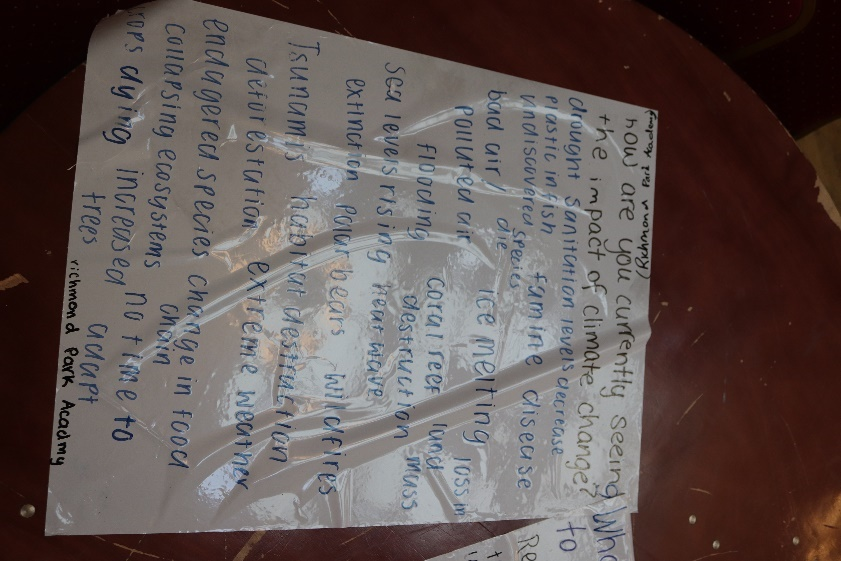 (Richmond Park Academy)
how are you currently seeing
the impact of climate change?
drought sanitation levels decrease
plastic in fish famine disease
undiscovered species die
bad air / ice melting loss in
polluted air coral reef land
flooding destruction mass
sea levels rising heatwave
extinction Polar bears wildfires
Tsunamis habitat destruction
deforestation extreme weather
endagered species change in food
collapsing ecosystems chain
crops dying increased no time to
trees adapt
richmond Park Acadmy
Re
to